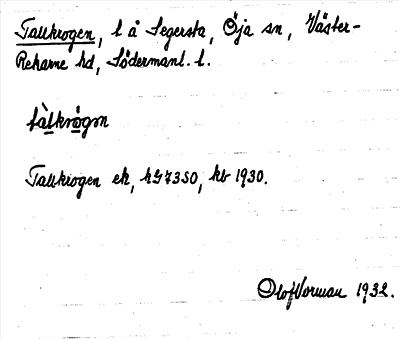 Tallkrogen, l å Segersta, Öja sn, Väster-
Rekarne hd, Södermanl. l.
tàlkrògɷn
Tallkrogen ek, h57350, kb 1930.
Olof Norman 1932.